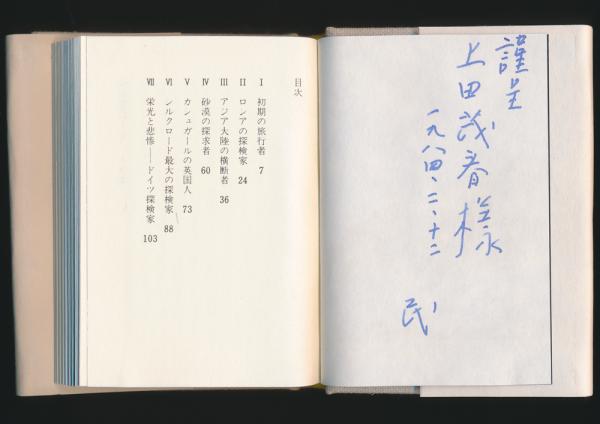 謹呈
上田茂春様
一九八四、二、十二
民
目次
I 初期の旅行者 7
II ロシアの探検家 24
III アジア大陸の横断者 36
IV 砂漠の探求者 60
V カシュガールの英国人 73
VI シルクロード最大の探検家 88
VII 栄光と悲惨――ドイツ探検家 103